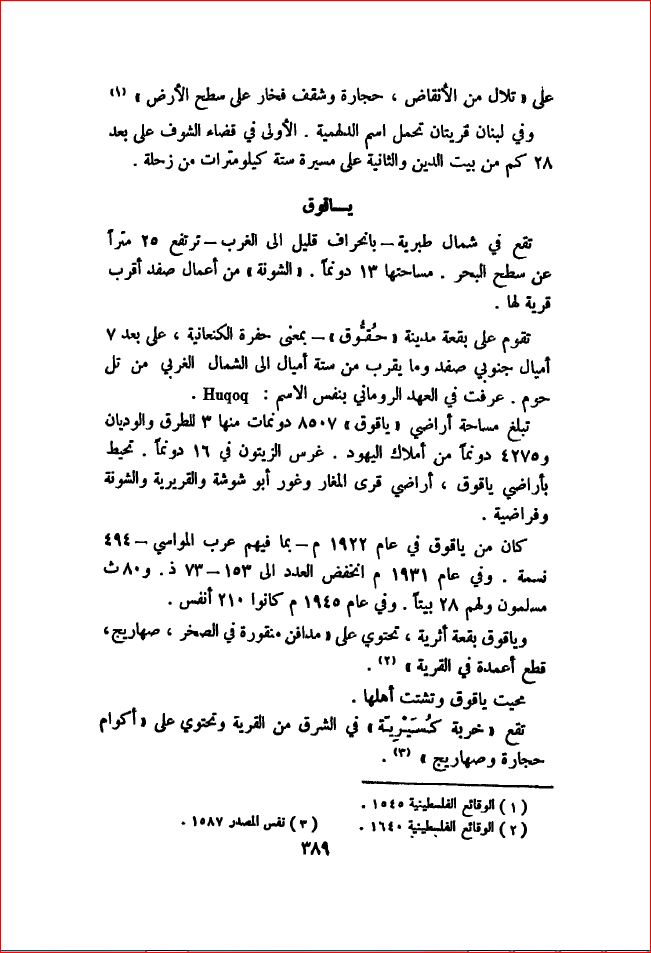 على « تلال من الأنقاض ، حجارة وشقف فخار على سطح الأرض » (١)
وفي لبنان قريتان تحمل اسم الدلهمية . الأولى في قضاء الشوف على بعد
٢٨ كم من بيت الدين والثانية على مسيرة ستة كيلومترات من زحلة .
يـــاقوق
تقع في شمال طبرية – بانحراف قليل الى الغرب – ترتفع ٢٥ متراً
عن سطح البحر . مساحتها ١٣ دونماً . « الشونة » من أعمال صفد أقرب
قرية لها .
تقوم على بقعة مدينة « حُقُّوق » – بمعنى حفرة الكنعانية ، على بعد ٧
أميال جنوبي صفد وما يقرب من ستة أميال الى الشمال الغربي من تل
حوم . عرفت في العهد الروماني بنفس الاسم : Huqoq .
تبلغ مساحة أراضي « ياقوق » ٨٥٠٧ دونمات منها ٣ للطرق والوديان
و٤٢٧٥ دونماً من أملاك اليهود . غرس الزيتون في ١٦ دونماً . تحيط
بأراضي ياقوق ، أراضي قرى المغار وغور أبو شوشة والقريرية والشونة
وفراضية .
كان من ياقوق في عام ١٩٢٢ م – بما فيهم عرب المواسي – ٤٩٤
نسمة . وفي عام ١٩٣١ م انخفض العدد الى ١٥٣ – ٧٣ ذ. و٨٠ ث
مسلمون ولهم ٢٨ بيتاً . وفي عام ١٩٤٥ م كانوا ٢١٠ أنفس .
وياقوق بقعة أثرية ، تحتوي على « مدافن منقورة في الصخر ، صهاريج ،
قطع أعمدة في القرية » (٢) .
محيت ياقوق وتشتت أهلها .
تقع « خربة كُسَيْرِيّة » في الشرق من القرية وتحتوي على « أكوام
حجارة وصهاريج » (٣) .
(١) الوقائع الفلسطينية ١٥٤٥ .
(٢) الوقائع الفلسطينية ١٦٤٠ . (٣) نفس المصدر ١٥٨٧ .
٣٨٩